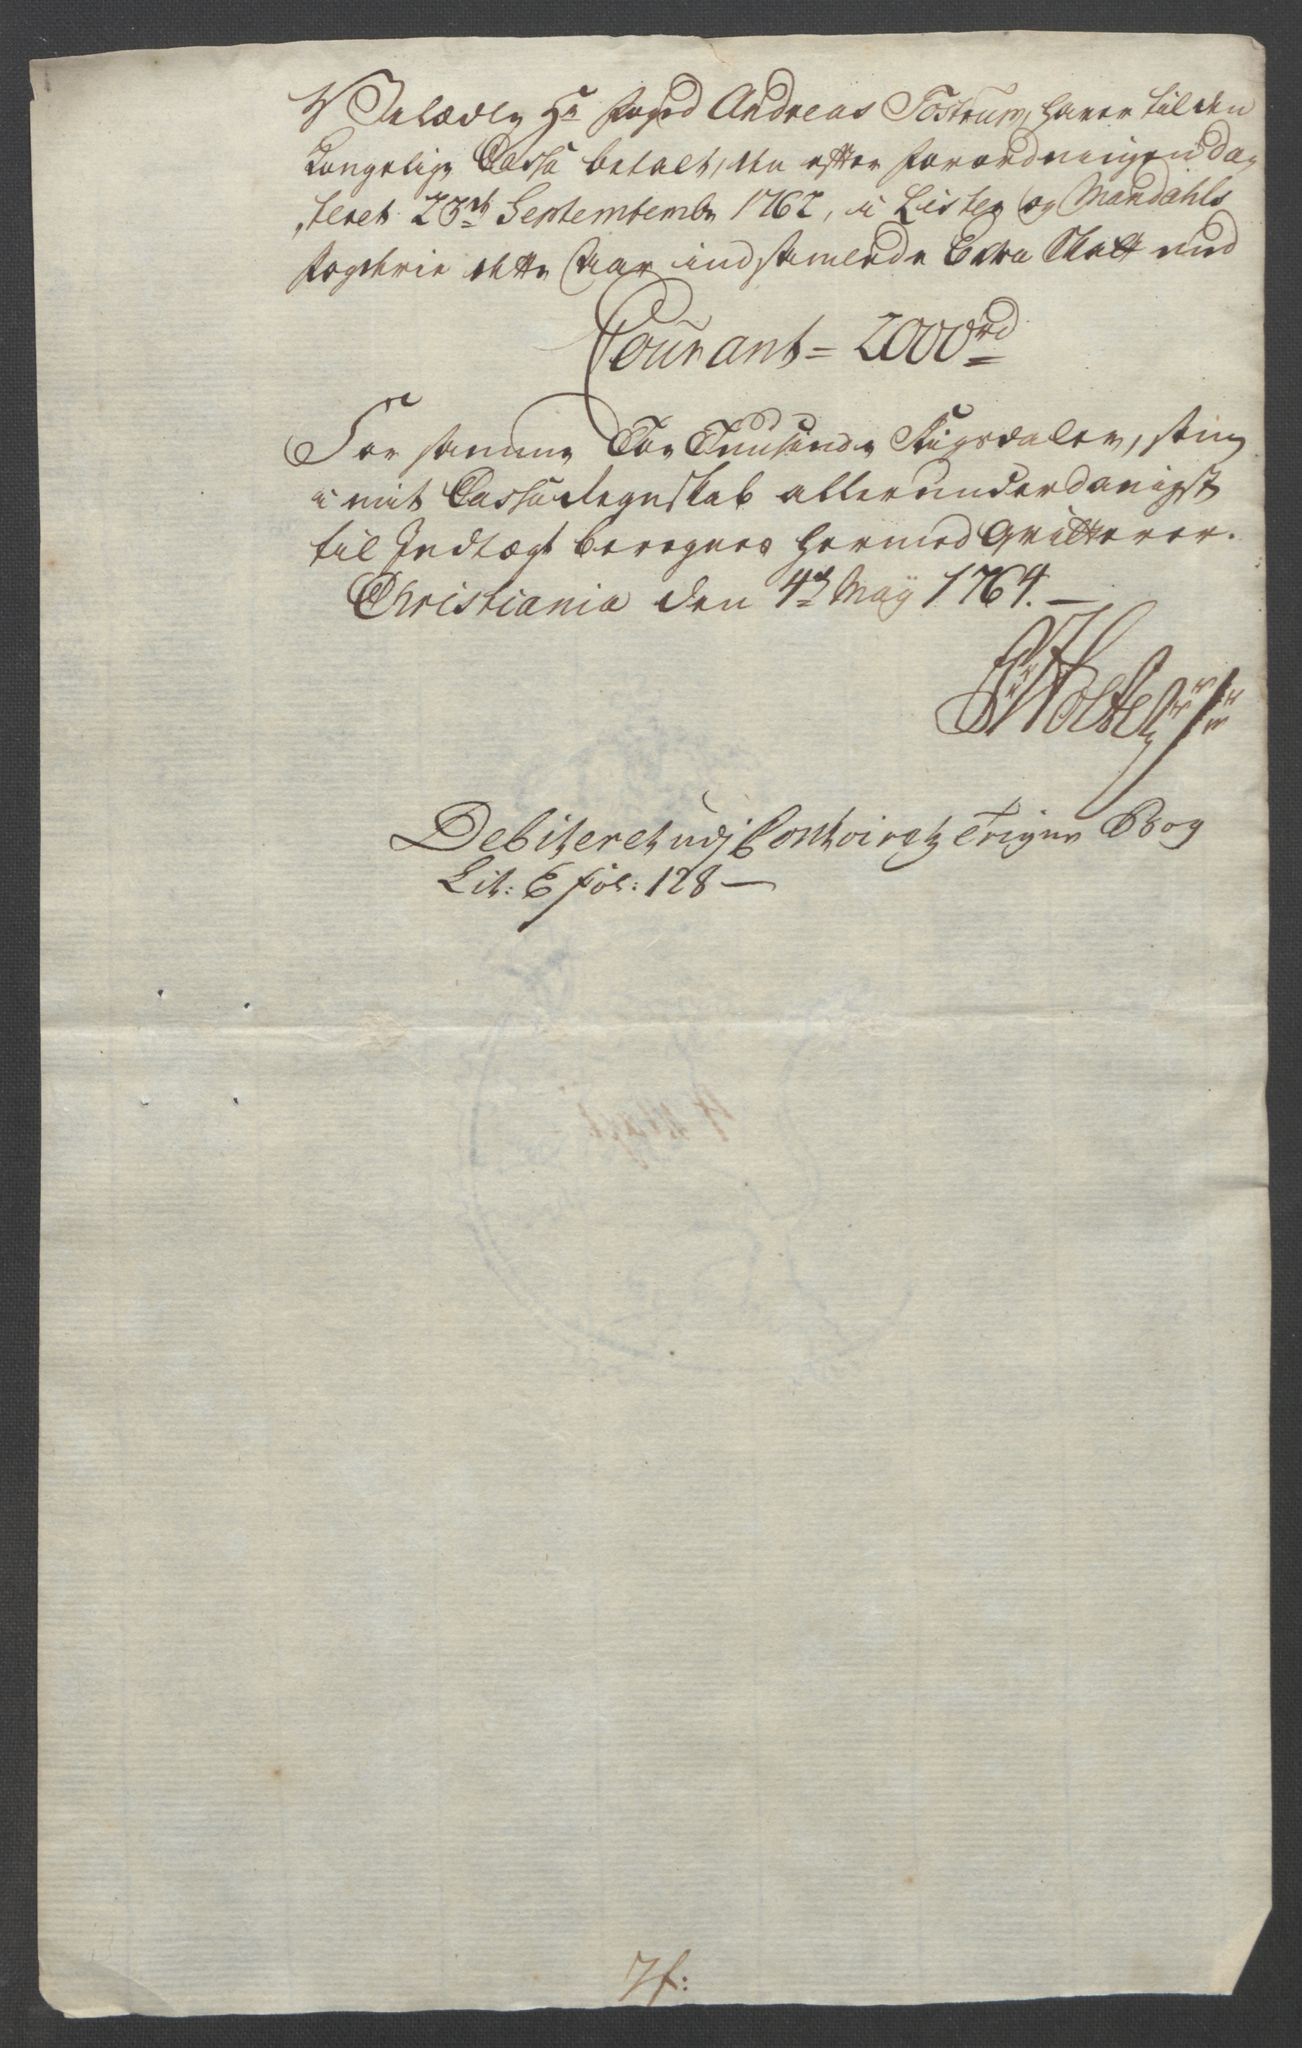 Velædle Hr Foged Andreas Tostrup, haver til den
Kongelige Cassa betalt, den efter Forordningen da,
,teret 23de Septembembr 1762, i Lister og Mandahls
Fogderie dette Aar indsamlede Extra Skatt med
Courant = 2000rd
For samme Toe Tuusinde Riigsdaler, som
i mit Cassa Regnskab allerunderdanigst
til Indtægt beregnes hermed Qvitterer.
Christiania den 4de Maÿ 1764. —
Debiteret udj Contoiretz
Bog
Lit: E fol: 128 —
7f: